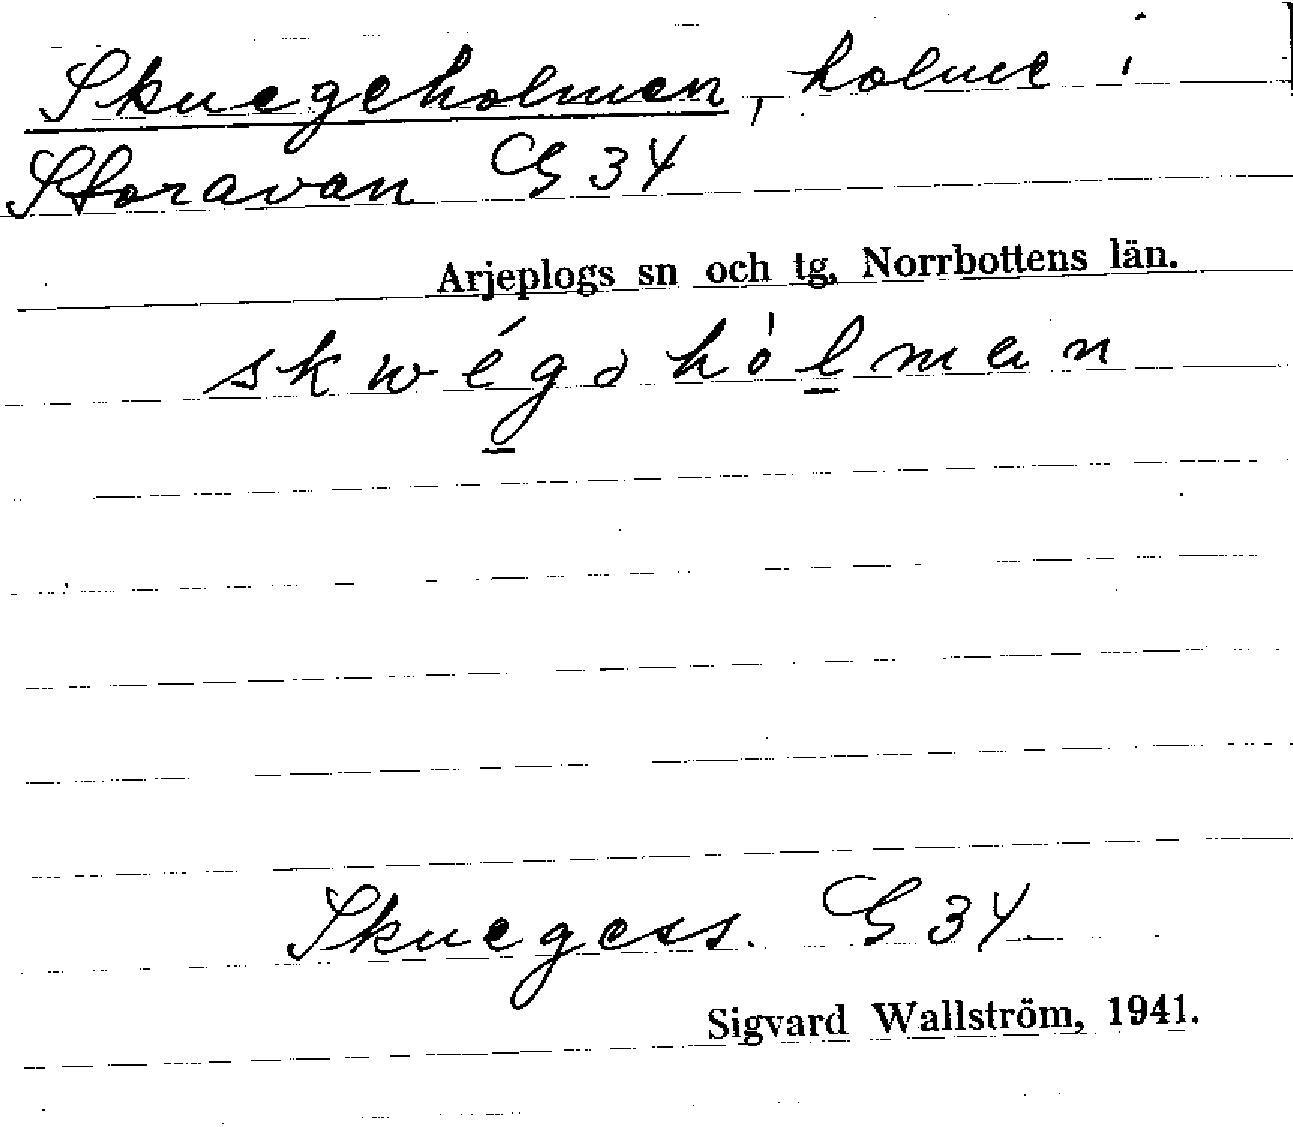 Skuegeholmen, holme i
Storavan G 34
Arjeplogs sn och tg, Norrbottens län.
skwégəhòlmən
Skuegess. G 34
Sigvard Wallström, 1941.